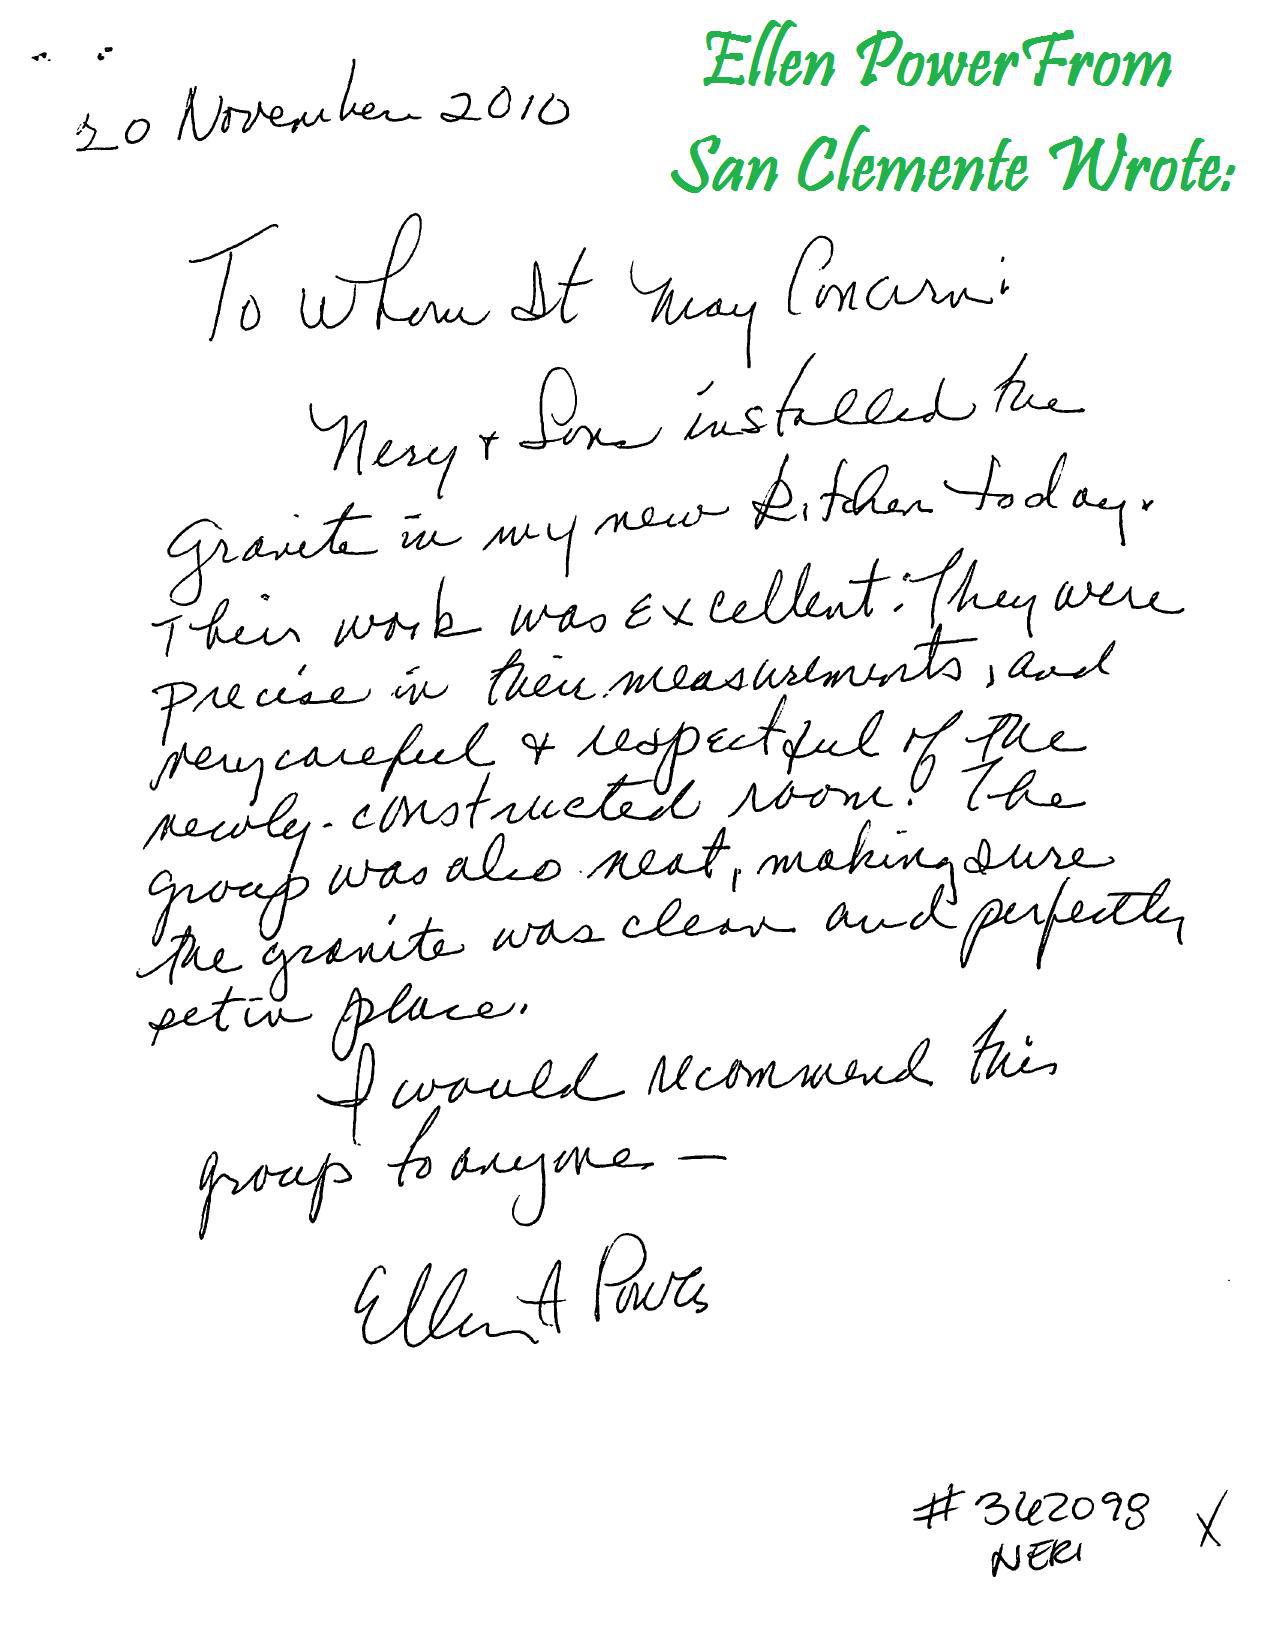 Ellen Power From
San Clemente Wrote:
20 November 2010
To Whom It May Concern:
Nery + Sons installed the
granite in my new kitchen today.
Their work was excellent. They were
precise in their measurements, and
very careful & respectful of the
newly-constructed room. The
group was also neat, making sure
the granite was clean and perfectly
set in place.
I would recommend this
group to anyone —
Ellen A Powers
#362098 X
NERI